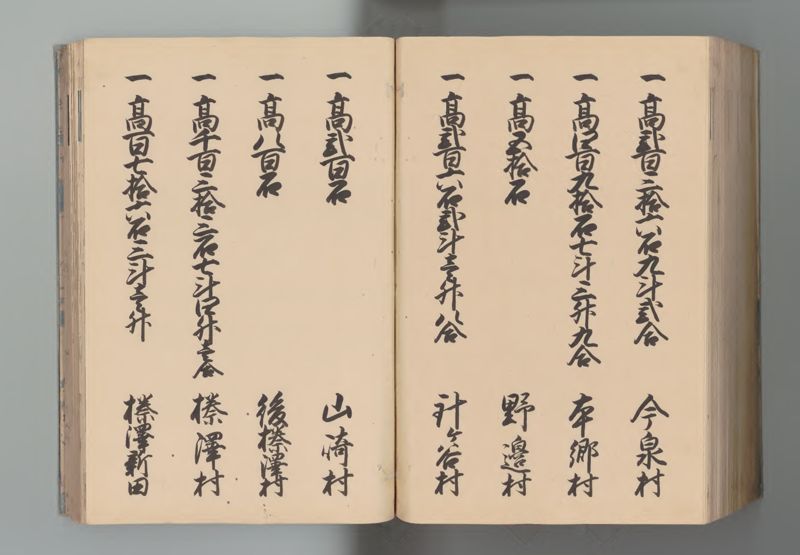 一 高弐百三拾六石九斗弐合 今泉村
一 高四百九拾石七斗三升九合 本郷村
一 高五拾石 野邉村
一 高弐百六石弐斗壱升八合 針ヶ谷村
一 高弐百石 山崎村
一 高八百石 後榛澤村
一 高千百三拾三石七斗四升壱合 榛澤村
一 高百七拾六石三斗壱升 榛澤新田